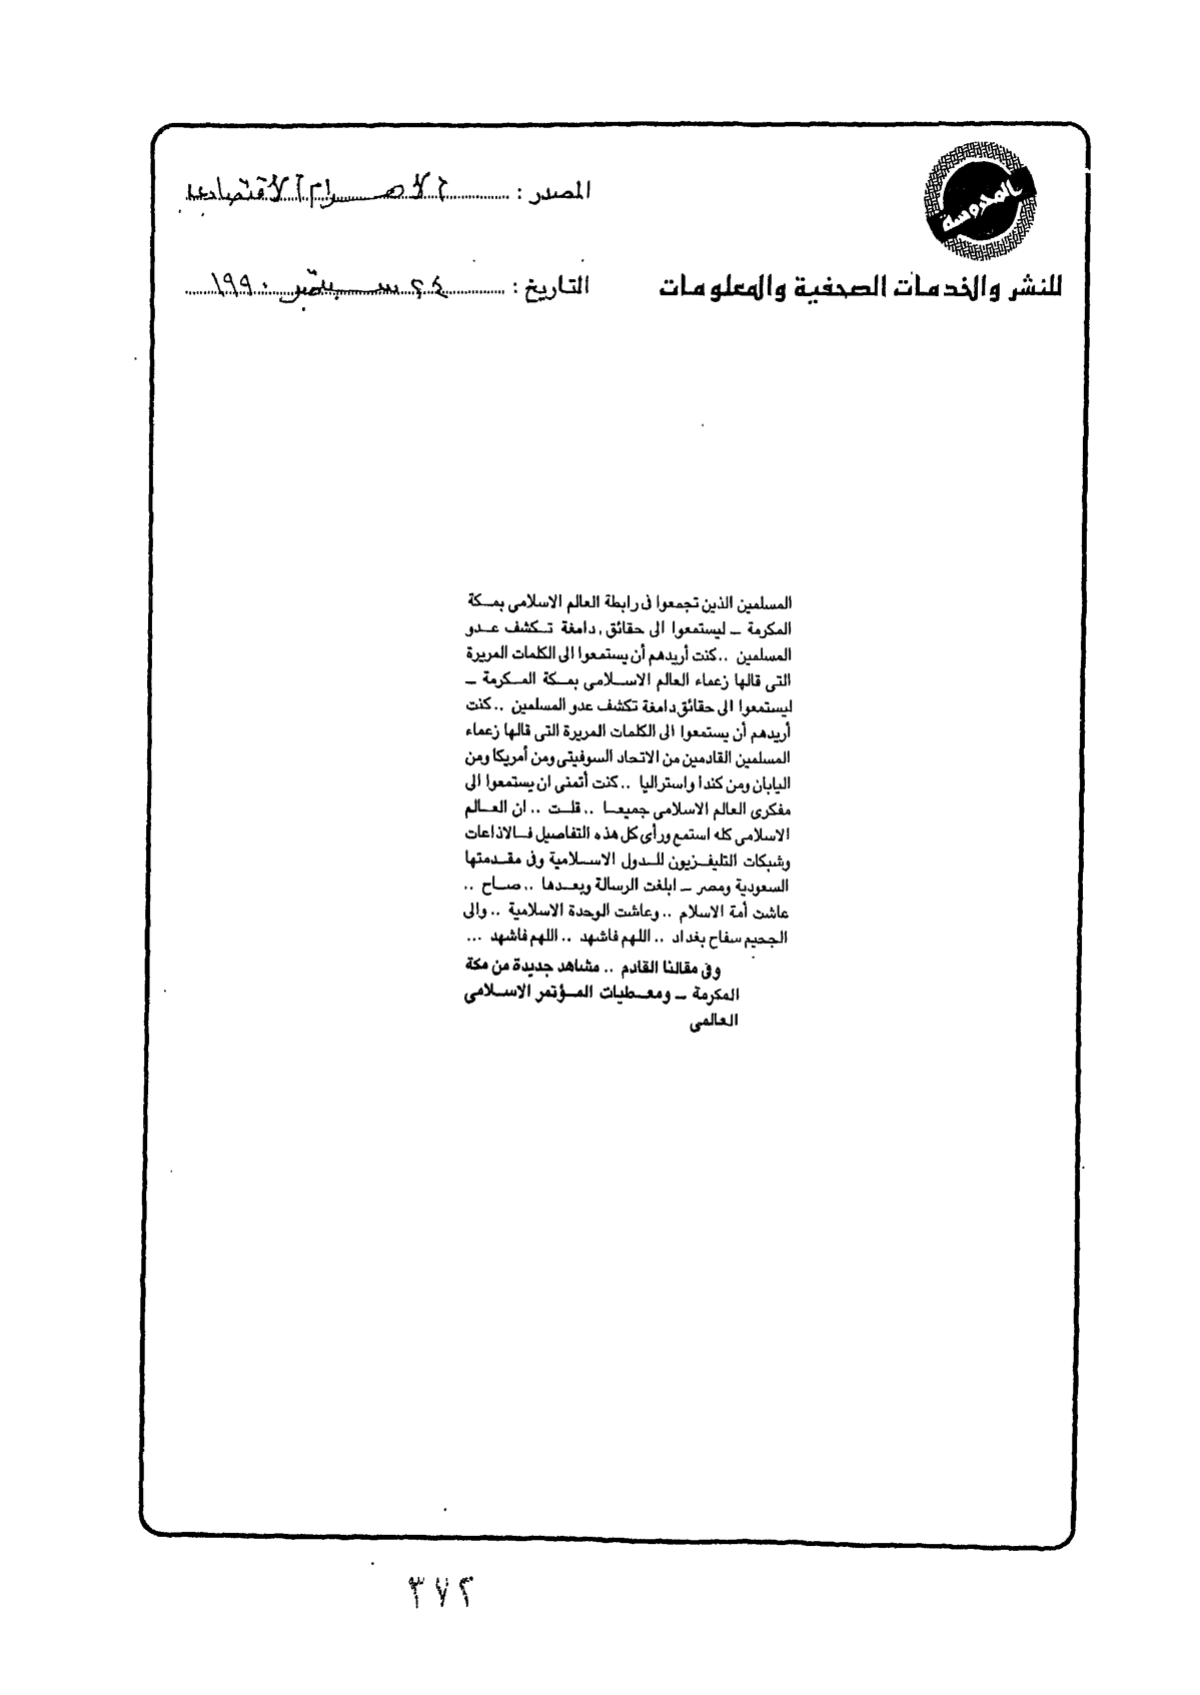 المحروسة
للنشر والخدمات الصحفية والمعلومات
المصدر : الأهرام الاقتصادى
التاريخ : ٢٤ سبتمبر ١٩٩٠
المسلمين الذين تجمعوا فى رابطة العالم الاسلامى بمكة
المكرمة ــ ليستمعوا الى حقائق دامغة تكشف عدو
المسلمين .. كنت أريدهم أن يستمعوا الى الكلمات المريرة
التى قالها زعماء العالم الاسلامى بمكة المكرمة ــ
ليستمعوا الى حقائق دامغة تكشف عدو المسلمين .. كنت
أريدهم أن يستمعوا الى الكلمات المريرة التى قالها زعماء
المسلمين القادمين من الاتحاد السوفيتى ومن أمريكا ومن
اليابان ومن كندا واستراليا .. كنت أتمنى ان يستمعوا الى
مفكرى العالم الاسلامى جميعا .. قلت .. ان العالم
الاسلامى كله استمع ورأى كل هذه التفاصيل فالاذاعات
وشبكات التليفزيون للدول الاسلامية وفى مقدمتها
السعودية ومصر ــ ابلغت الرسالة وبعدها .. صاح ..
عاشت أمة الاسلام .. وعاشت الوحدة الاسلامية .. والى
الجحيم سفاح بغداد .. اللهم فاشهد .. اللهم فاشهد ...
وفى مقالنا القادم .. مشاهد جديدة من مكة
المكرمة ــ ومعطيات المؤتمر الاسلامى
العالمى
٣٧٢